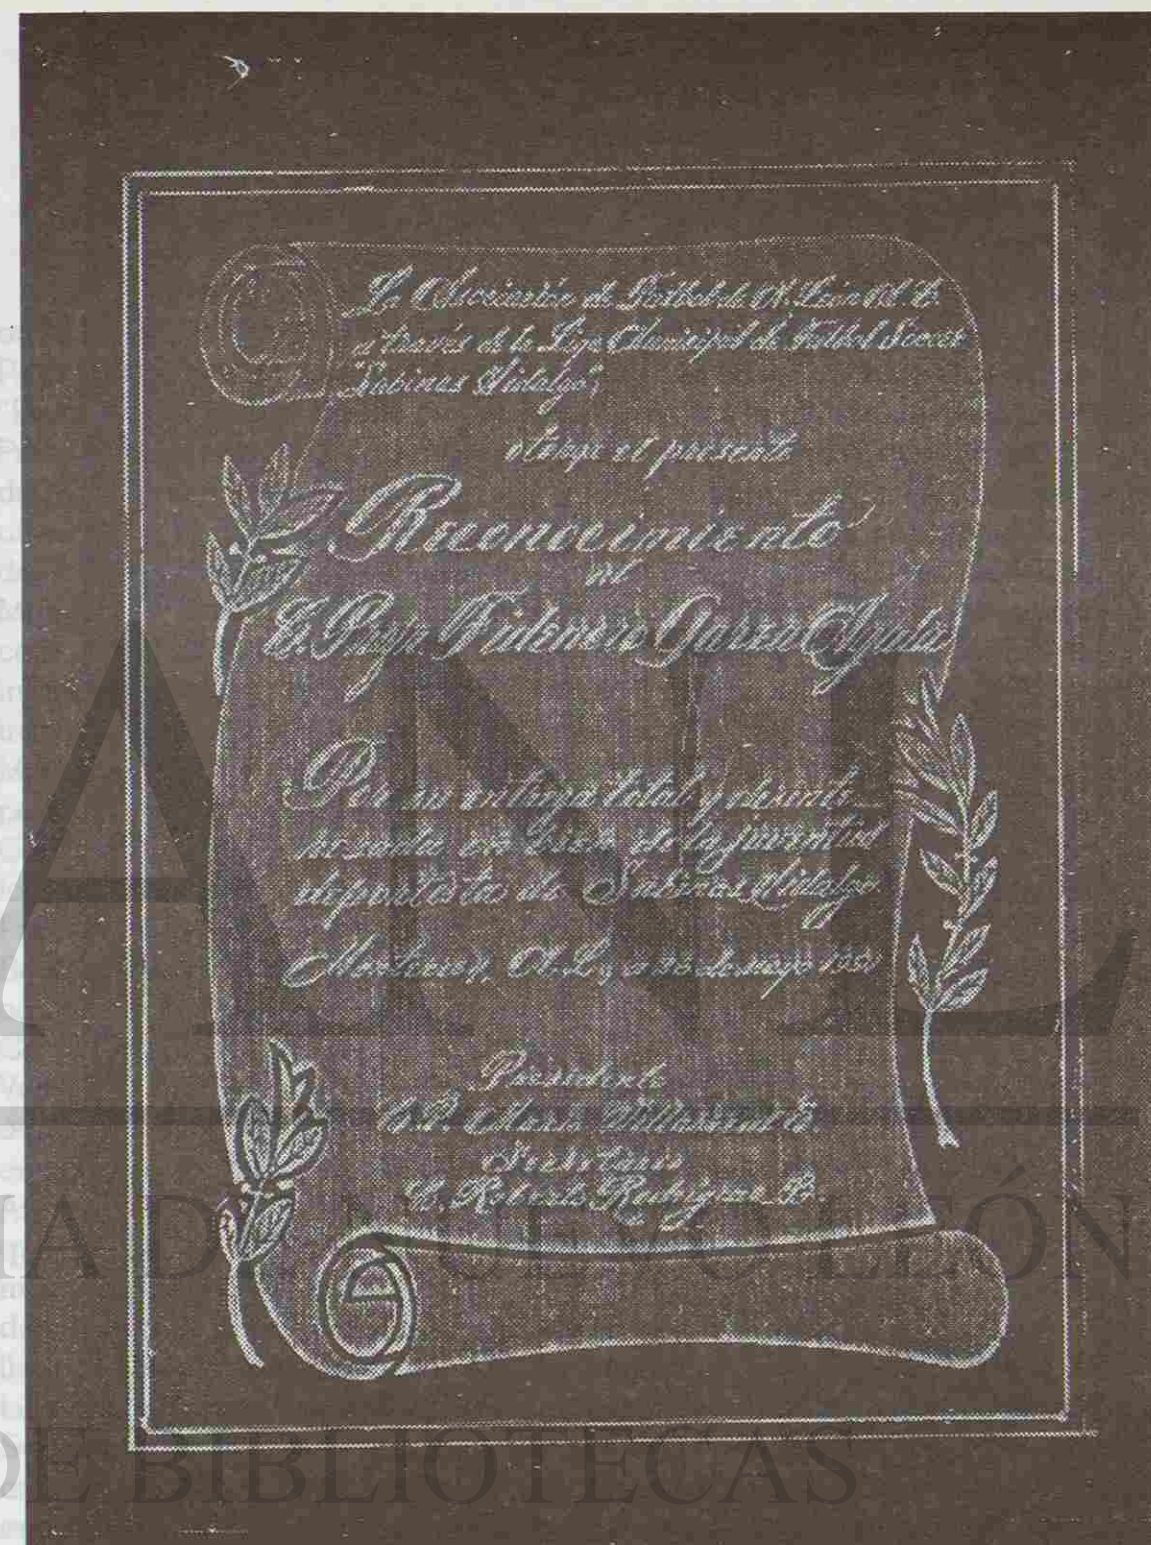 La Asociación de Futbol de N. León A. C.
a través de la Liga Municipal de Futbol Soccer
"Sabinas Hidalgo";
otorga el presente
Reconocimiento
al
C. Profr. Fidencio Garza Ayala
Por su entrega total y desinte-
resada en bien de la juventud
deportista de Sabinas Hidalgo
Monterrey, N. L., a de mayo
Presidente
C.P. Mario
Secretario
C. Roberto Rodríguez B.
ANL
MA DE NUEVO LEÓN
DE BIBLIOTECAS